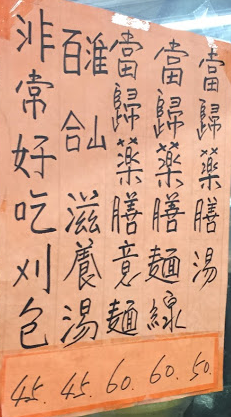 當歸藥膳湯 50.
當歸藥膳麵線 60.
當歸藥膳意麵 60.
淮山百合滋養湯 45.
非常好吃刈包 45.